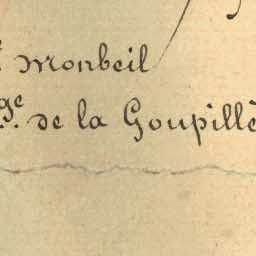 t Monbeil
ge de la Goupillè